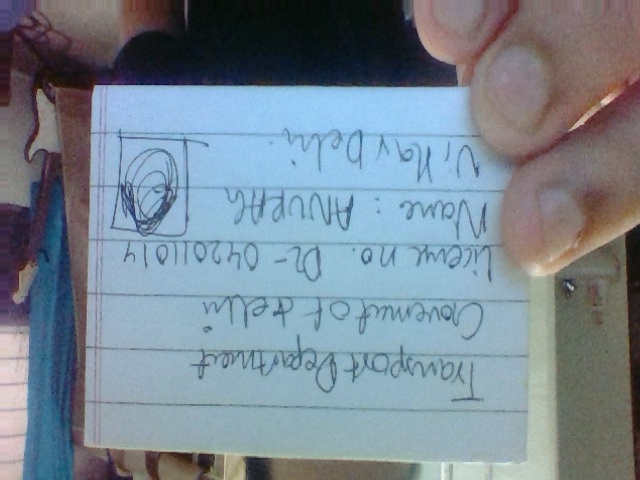 Transport Department
Goverment of delhi
License no. DL- 042011014
Name : ANURAG
Delhi.